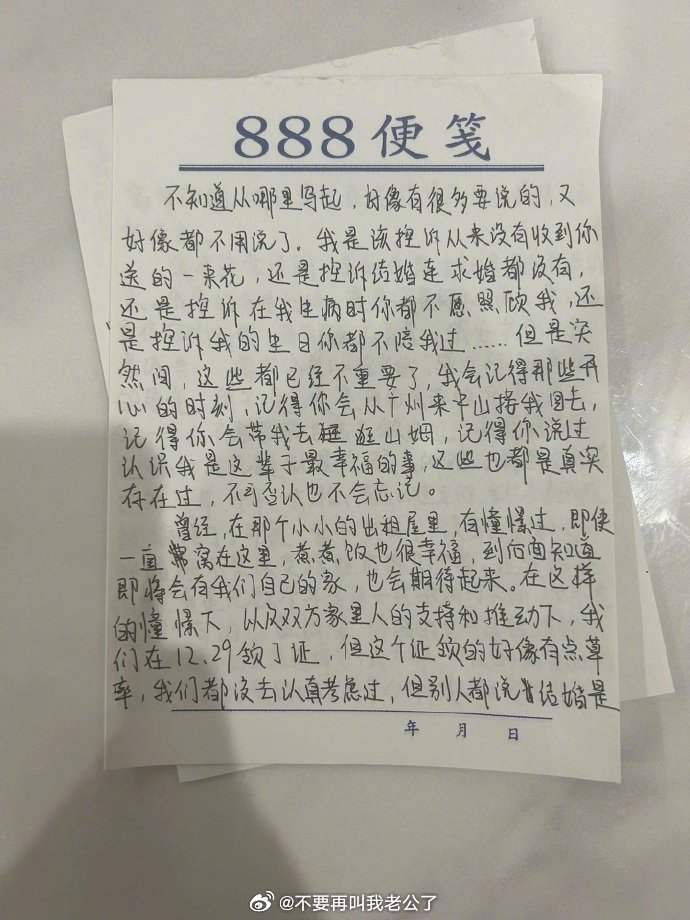 888便笺
不知道从哪里写起，好像有很多要说的，又
好像都不用说了。我是该控诉从来没有收到你
送的一束花，还是控诉结婚连求婚都没有，
还是控诉在我生病时你都不愿照顾我，还
是控诉我的生日你都不陪我过……但是突
然间，这些都已经不重要了，我会记得那些开
心的时刻，记得你会从广州来中山接我回去，
记得你会带我去逛山姆，记得你说过
认识我是这辈子最幸福的事，这些也都是真实
存在过，不可否认也不会忘记。
曾经，在那个小小的出租屋里，有憧憬过，即使
一直窝在这里，煮煮饭也很幸福，到后面知道
即将会有我们自己的家，也会期待起来。在这样
的憧憬下，以及双方家里人的支持和推动下，我
们在12.29领了证，但这个证领的好像有点草
率，我们都没去认真考虑过，但别人都说结婚是
年 月 日
@不要再叫我老公了